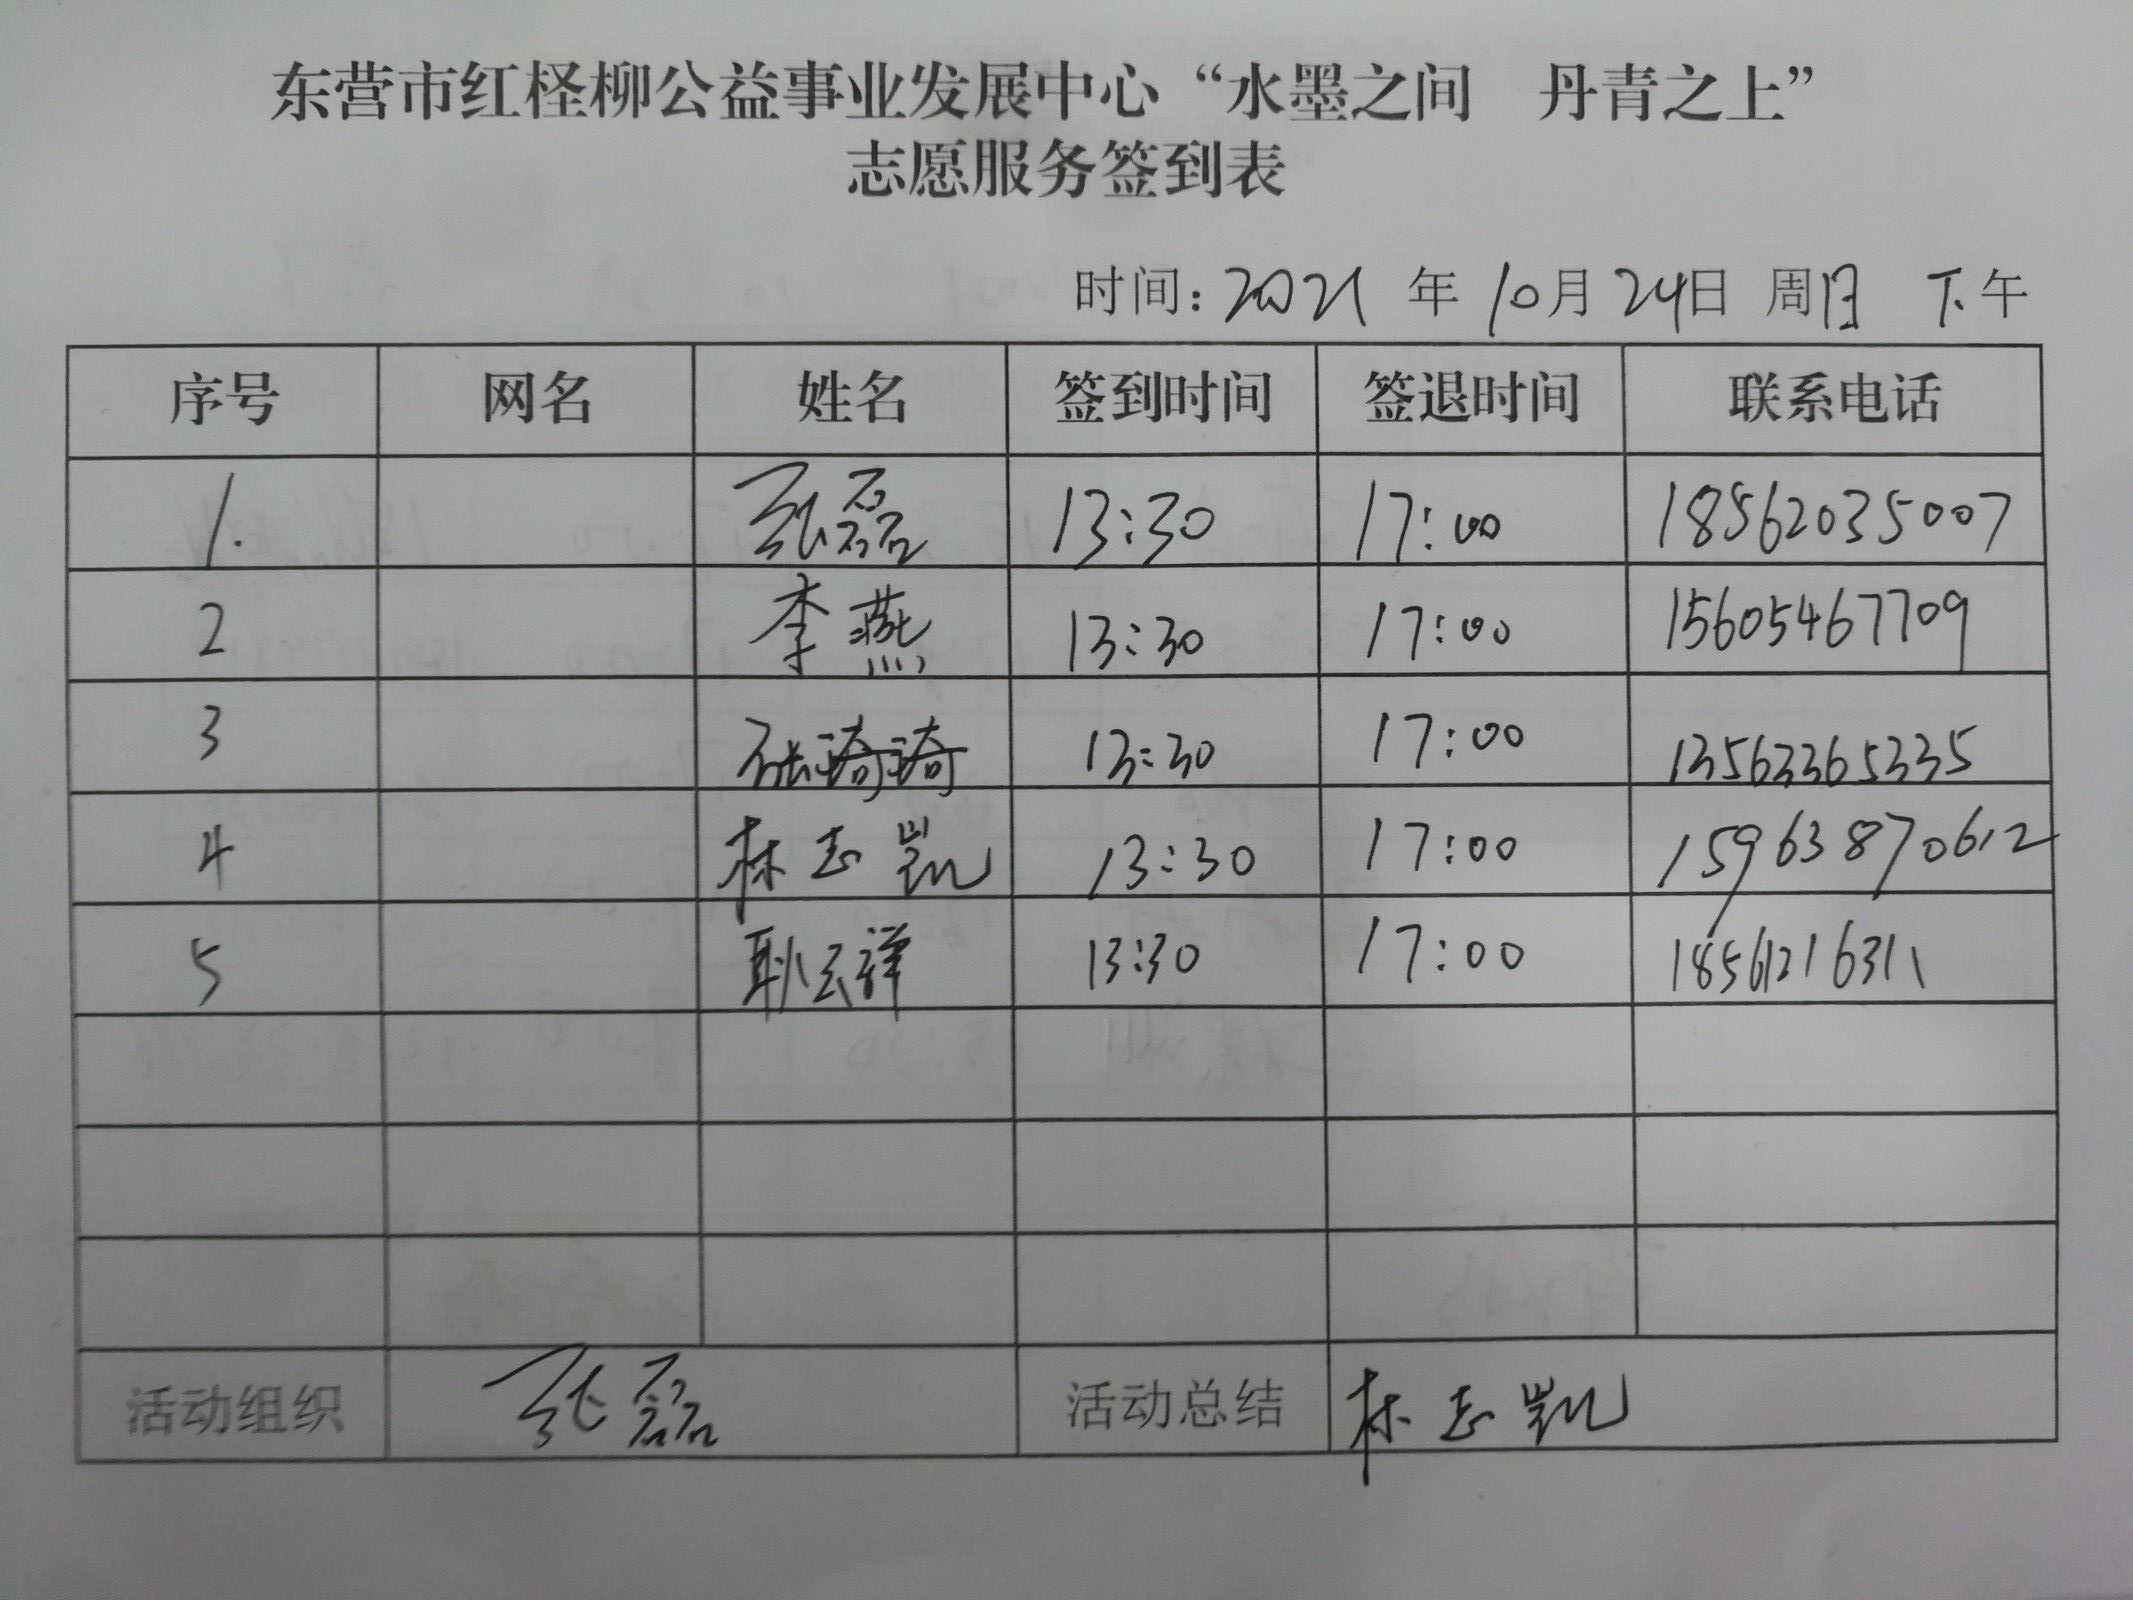 东营市红柽柳公益事业发展中心“水墨之间 丹青之上”
志愿服务签到表
时间：2021 年 10月 24日 周日 下午
序号 网名 姓名 签到时间 签退时间 联系电话
1. 张磊 13:30 17:00 18562035007
2 李燕 13:30 17:00 15605467709
3 张琦琦 13:30 17:00 13563365335
4 林志凯 13:30 17:00 15963870612
5 耿云祥 13:30 17:00 18561216311
活动组织 张磊 活动总结 林志凯